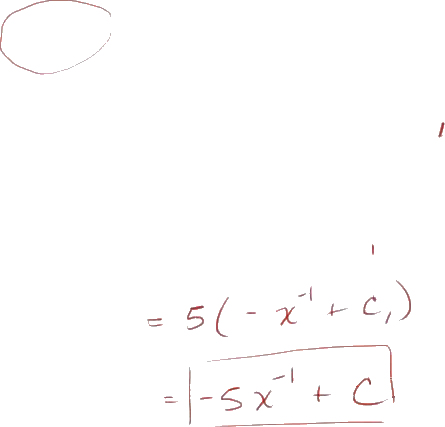 = 5(-x⁻¹ + C₁)
= -5x⁻¹ + C